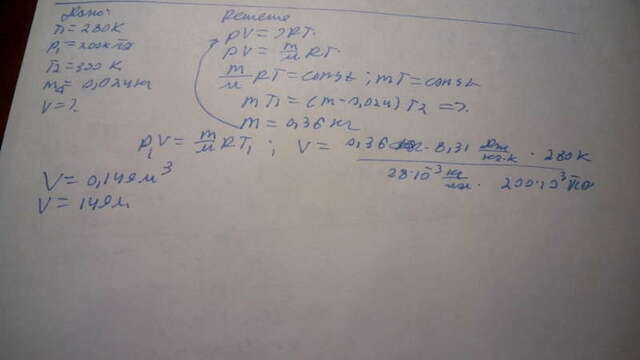 Дано:
T₁ = 280К
P₁ = 200кПа
T₂ = 300 К
m = 0,024кг
V = ?
Решение
pV = νRT
pV = m/μ RT
m/μ RT = const ; mT = const
mT₁ = (m-0,024) T₂ =>
m = 0,36 кг
p₁V = m/μ RT₁ ; V = 0,36 кг · 8,31 Дж/кг·К · 280К / 28·10⁻³ кг/моль · 200·10³ Па
V = 0,149м³
V = 149л